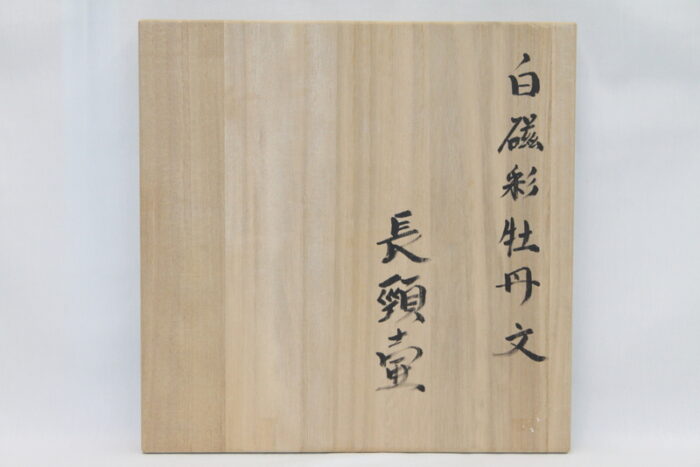 白磁彩牡丹文
長頸壷